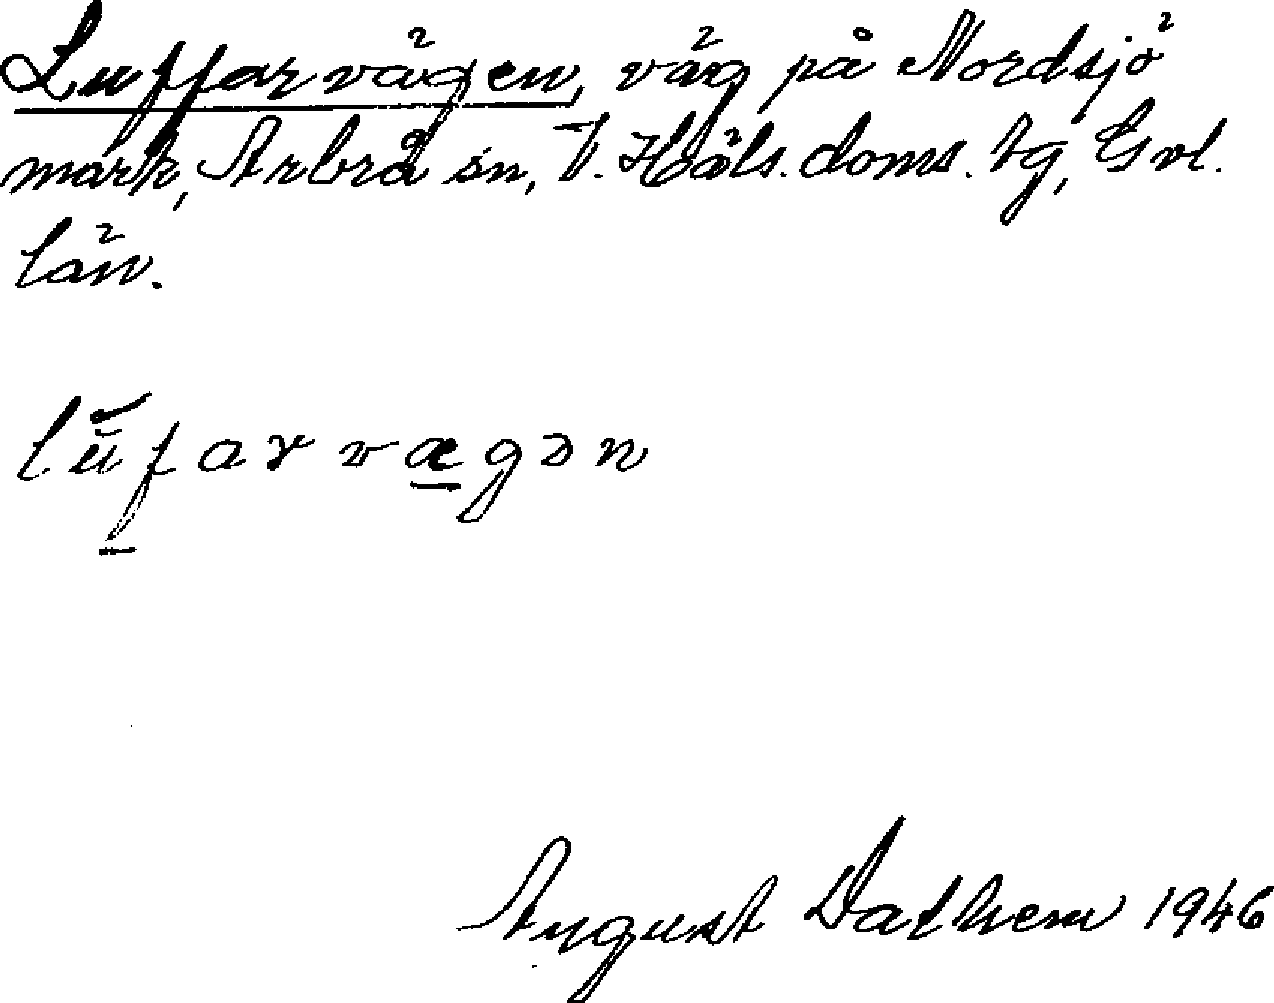 Luffarvägen, väg på Nordsjö
mark, Arbrå sn, V. Häls. doms. tg, Gvl.
län.
lŭ́f̲arvæ̲gən
August Dathem 1946